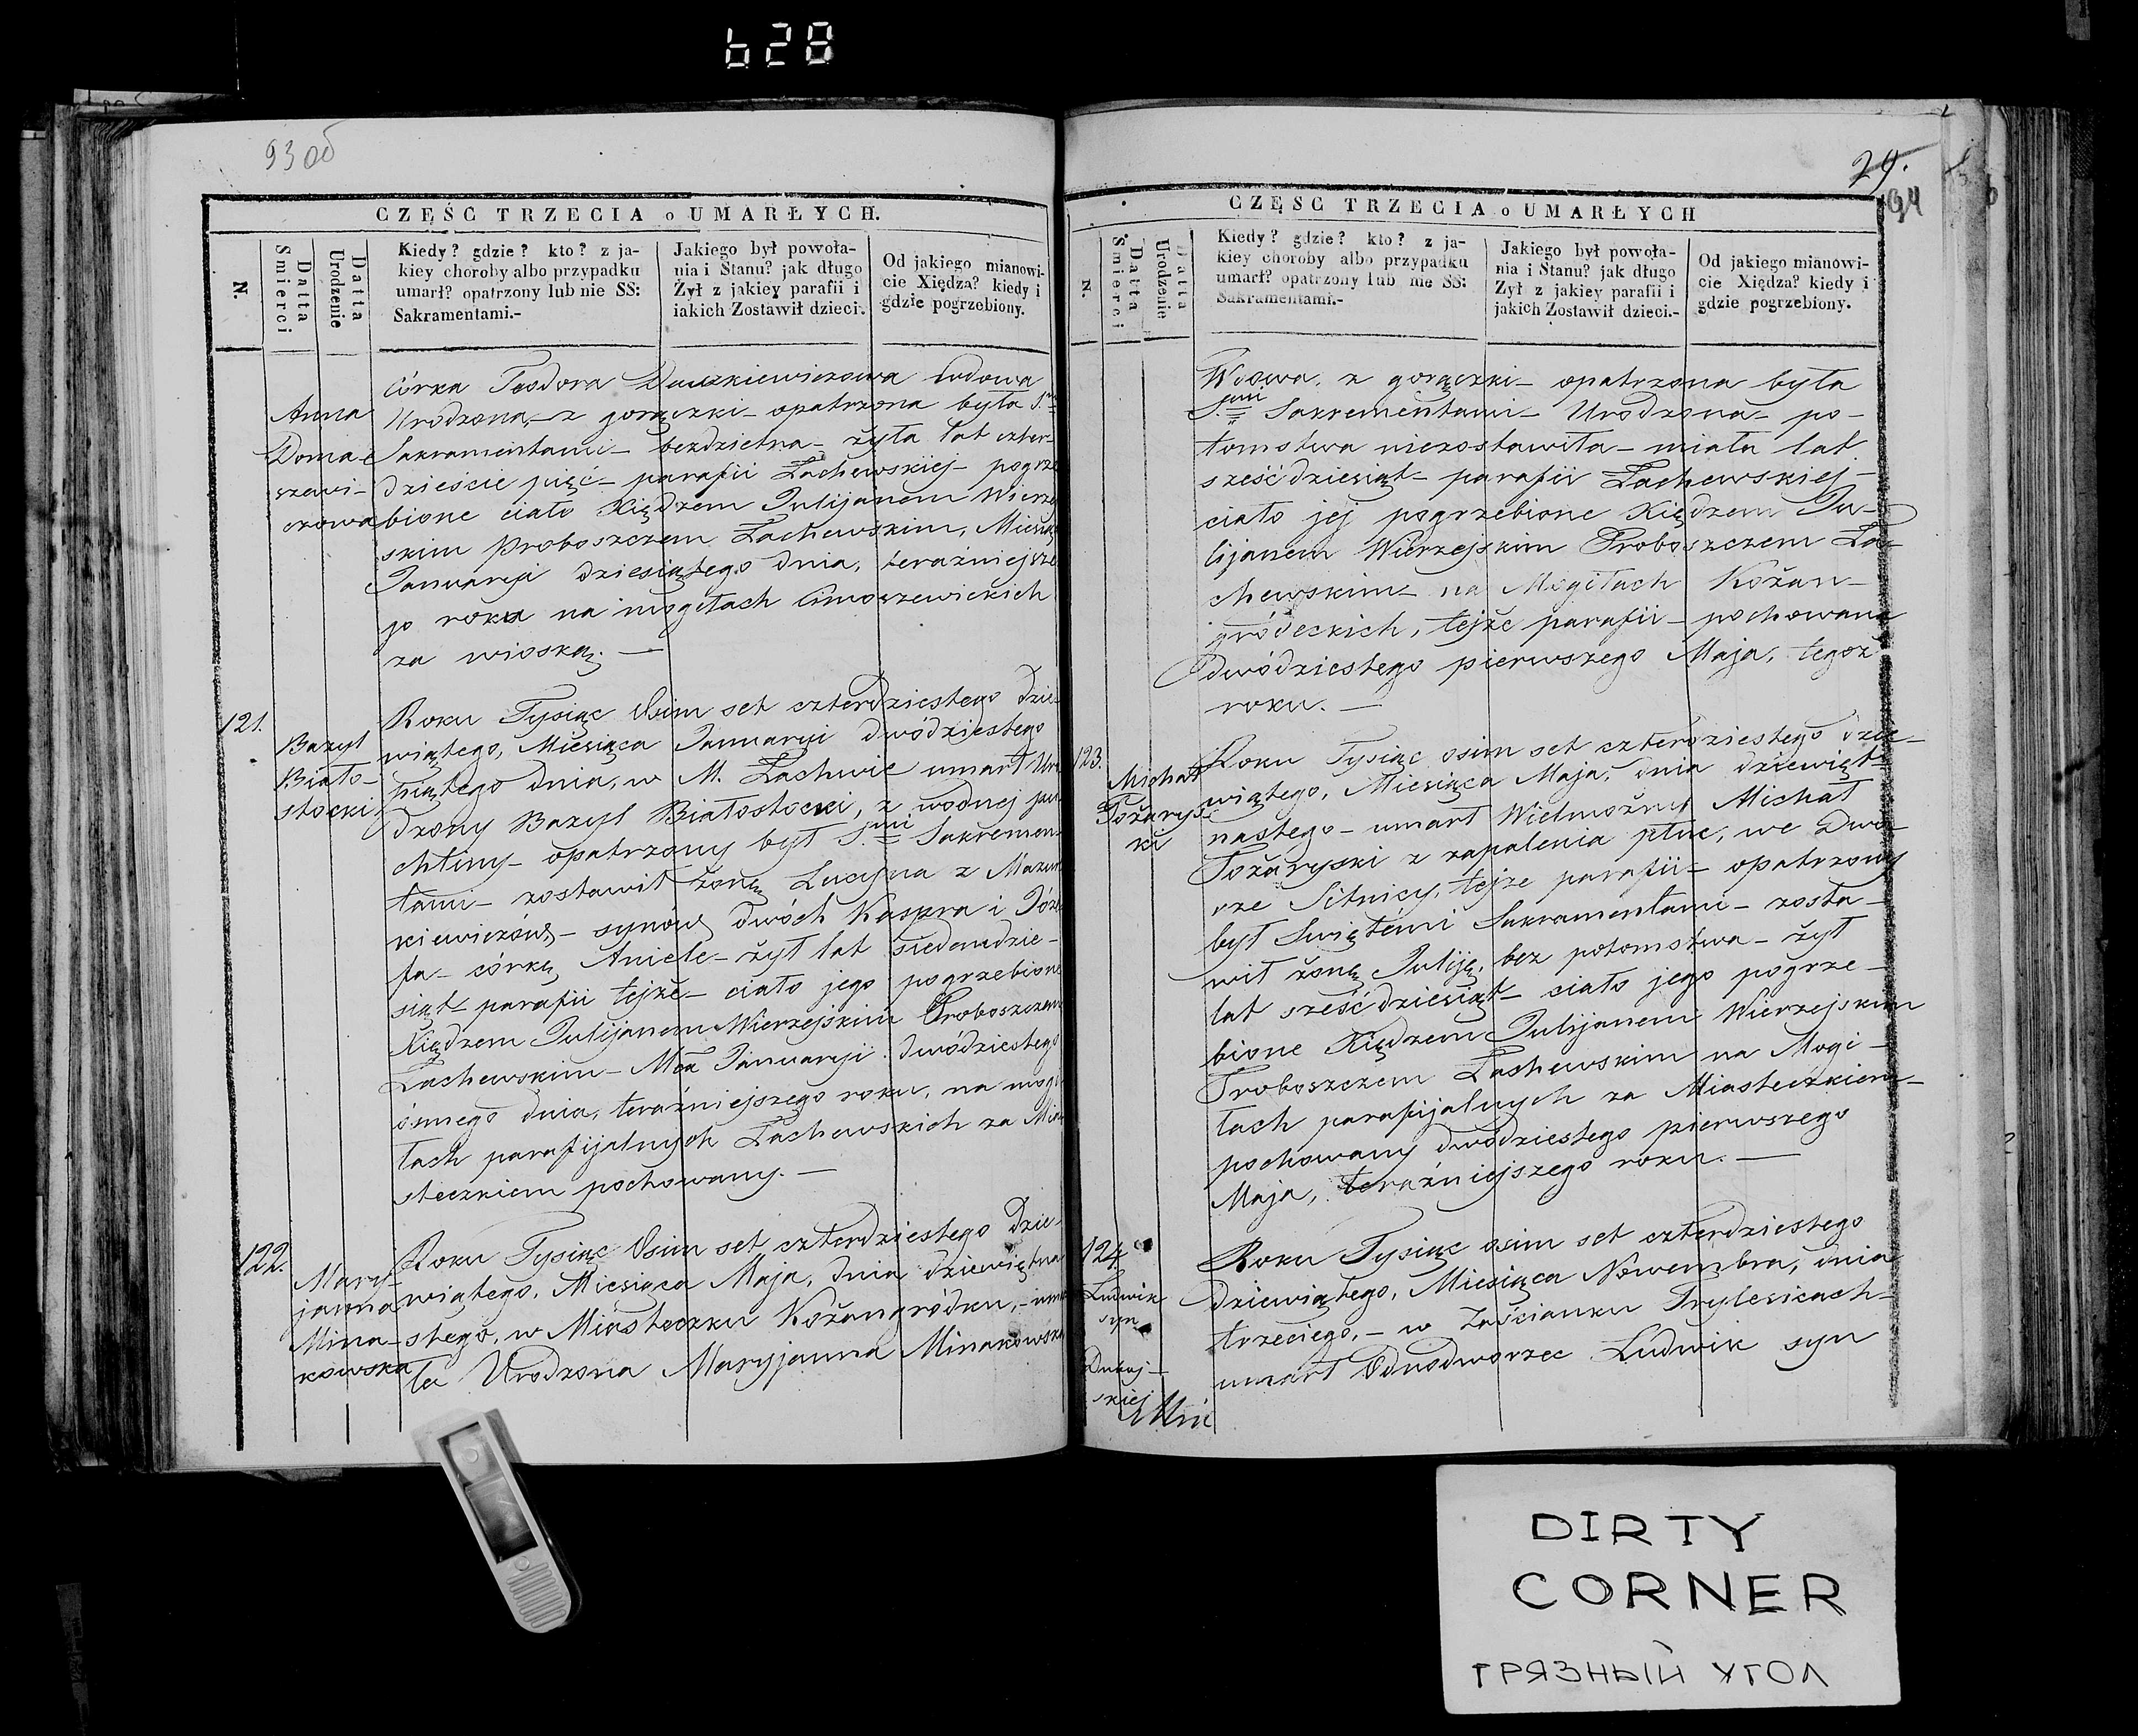 628
93 об
CZĘŚC TRZECIA o UMARŁYCH.
N.
Datta Smierci
Datta Urodzenie
Kiedy? gdzie? kto? z ja-
kiey choroby albo przypadku
umarł? opatrzony lub nie SS:
Sakramentami.-
Jakiego był powoła-
nia i Stanu? jak długo
Żył z jakiey parafii i
iakich Zostawił dzieci.
Od jakiego mianowi-
cie Xiędza? kiedy i
gdzie pogrzebiony.
Anna
Doma-
szewi-
czowa
córka Teodora Daszkiewiczowa wdowa
Urodzona, z gorączki - opatrzona była S.mi
Sakramentami - bezdzietna - żyła lat czter-
dzieście pięć - parafii Łachewskiej - pogrze
bione ciało Xiędzem Julijanem Wierzej
skim Proboszczem Łachewskim, Miesiąca
Januarji dziesiątego dnia, teraźniejsze
go roku na mogiłach
za wioską. —
121.
Bazyl
Biało-
stocki
Roku Tysiąc Osim set czterdziestego dzie-
wiątego, Miesiąca Januarji dwódziestego
piątego dnia, w M. Łachwie umarł Uro
dzony Bazyl Białostocki, z wodnej pu
chliny - opatrzony był S.mi Sakramen-
tami - zostawił żonę Lucyna z
kiewiczów, - synów dwóch Kaspra i Józe
fa - córkę Aniele - żył lat siedemdzie-
siąt - parafii tejże - ciało jego pogrzebione
Xiędzem Julijanem Wierzejskim Proboszczem
Łachewskim - Mca Januarji dwódziestego
ósmego dnia, teraźniejszego roku, na mogi
łach parafijalnych Łachewskich za Mia
steczkiem pochowany. —
122.
Mary-
janna
Mina-
kowska
Roku Tysiąc Osim set czterdziestego dzie-
wiątego, Miesiąca Maja, dnia dziewiętna
stego, w Miasteczku Kożangródku, - uma
ła Urodzona Maryjanna Minakowska
29.
94
CZĘŚC TRZECIA o UMARŁYCH
N.
Datta Smierci
Datta Urodzenie
Kiedy? gdzie? kto? z ja-
kiey choroby albo przypadku
umarł? opatrzony lub nie SS:
Sakramentami.-
Jakiego był powoła-
nia i Stanu? jak długo
Zył z jakiey parafii i
jakich Zostawił dzieci.-
Od jakiego mianowi-
cie Xiędza? kiedy i
gdzie pogrzebiony.
Wdowa, z gorączki - opatrzona była
S.mi Sakrementami - Urodzona - po-
tomstwa niezostawiła - miała lat
sześćdziesiąt - parafii Łachewskiej -
ciało jej pogrzebione Xiędzem Ju-
lijanem Wierzejskim Proboszczem Ła-
chewskim - na Mogiłach Kożan-
gródeckich, tejże parafii - pochowana
dwódziestego pierwszego Maja, tegoż
roku. —
123.
Michał
Pożarys-
ki
Roku Tysiąc osim set czterdziestego dzie-
wiątego, Miesiąca Maja, dnia dziewięt-
nastego - umarł Wielmożny Michał
Pożaryski z zapalenia płuc, we Dwo-
rze Sitnicy, tejże parafii - opatrzony
był Swiętemi Sakramentami - zosta-
wił żonę Juliję, bez potomstwa - żył
lat sześćdziesiąt - ciało jego pogrze-
bione Xiędzem Julijanem Wierzejskim
Proboszczem Łachewskim na Mogi-
łach parafijalnych za Miasteczkiem -
pochowany dwódziestego pierwszego
Maja, teraźniejszego roku. —
124
Ludwik
syn
Roku Tysiąc osim set czterdziestego
dziewiątego, Miesiąca Nowembra, dnia
trzeciego, - w Zaścianku Prylesicach -
umarł Odnodworzec Ludwik syn
DIRTY
CORNER
ГРЯЗНЫЙ УГОЛ